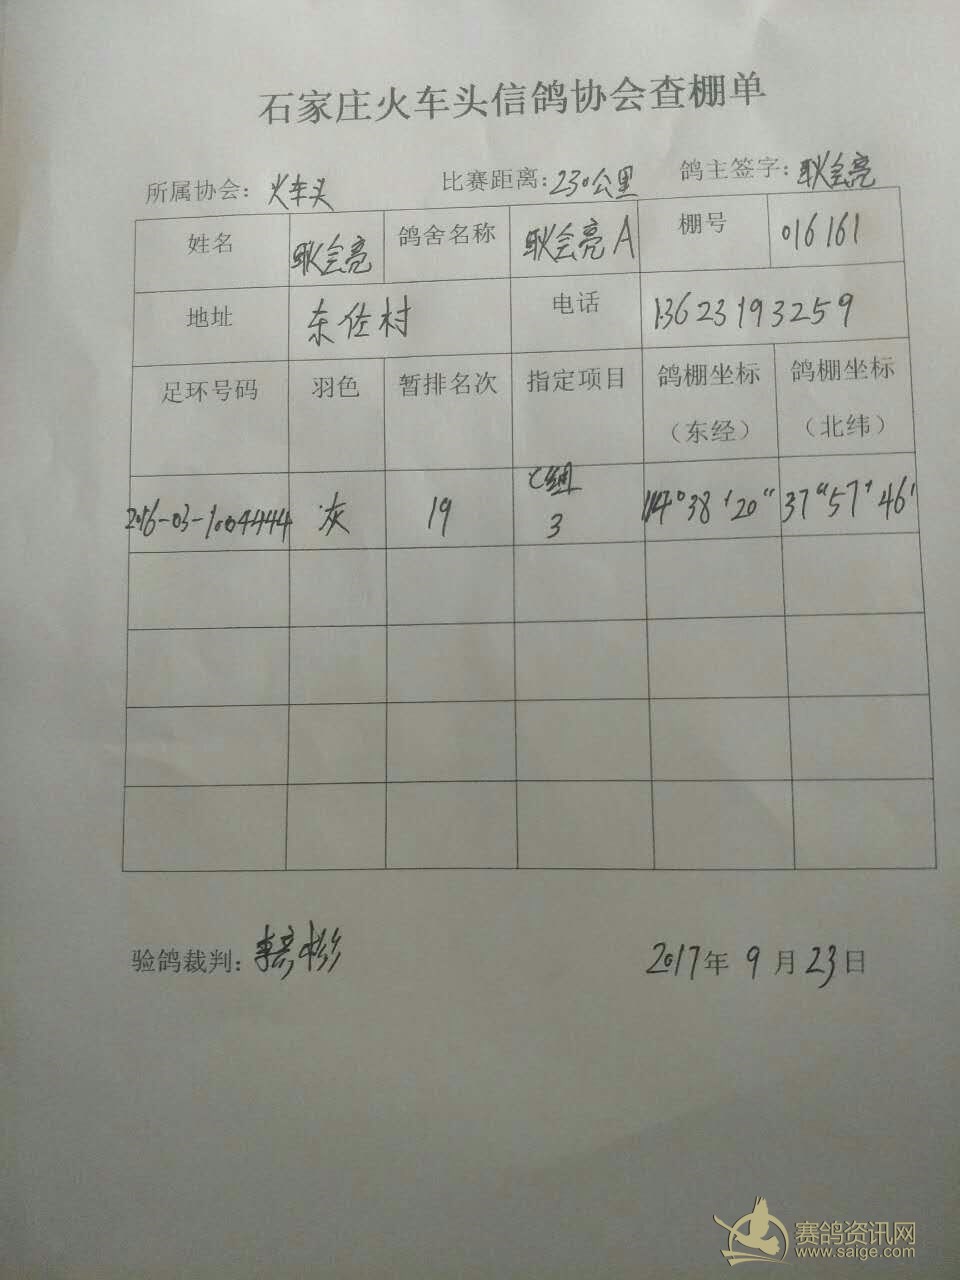 石家庄火车头信鸽协会查棚单
所属协会：火车头 比赛距离：230公里 鸽主签字：耿会亮
姓名 耿会亮 鸽舍名称 耿会亮A 棚号 016161
地址 东佐村 电话 13623193259
足环号码 羽色 暂排名次 指定项目 鸽棚坐标（东经） 鸽棚坐标（北纬）
2016-03-1004444 灰 19 C组 3 114°38′20″ 37°57′46′
验鸽裁判： 2017年9月23日
赛鸽资讯网
www.saige.com